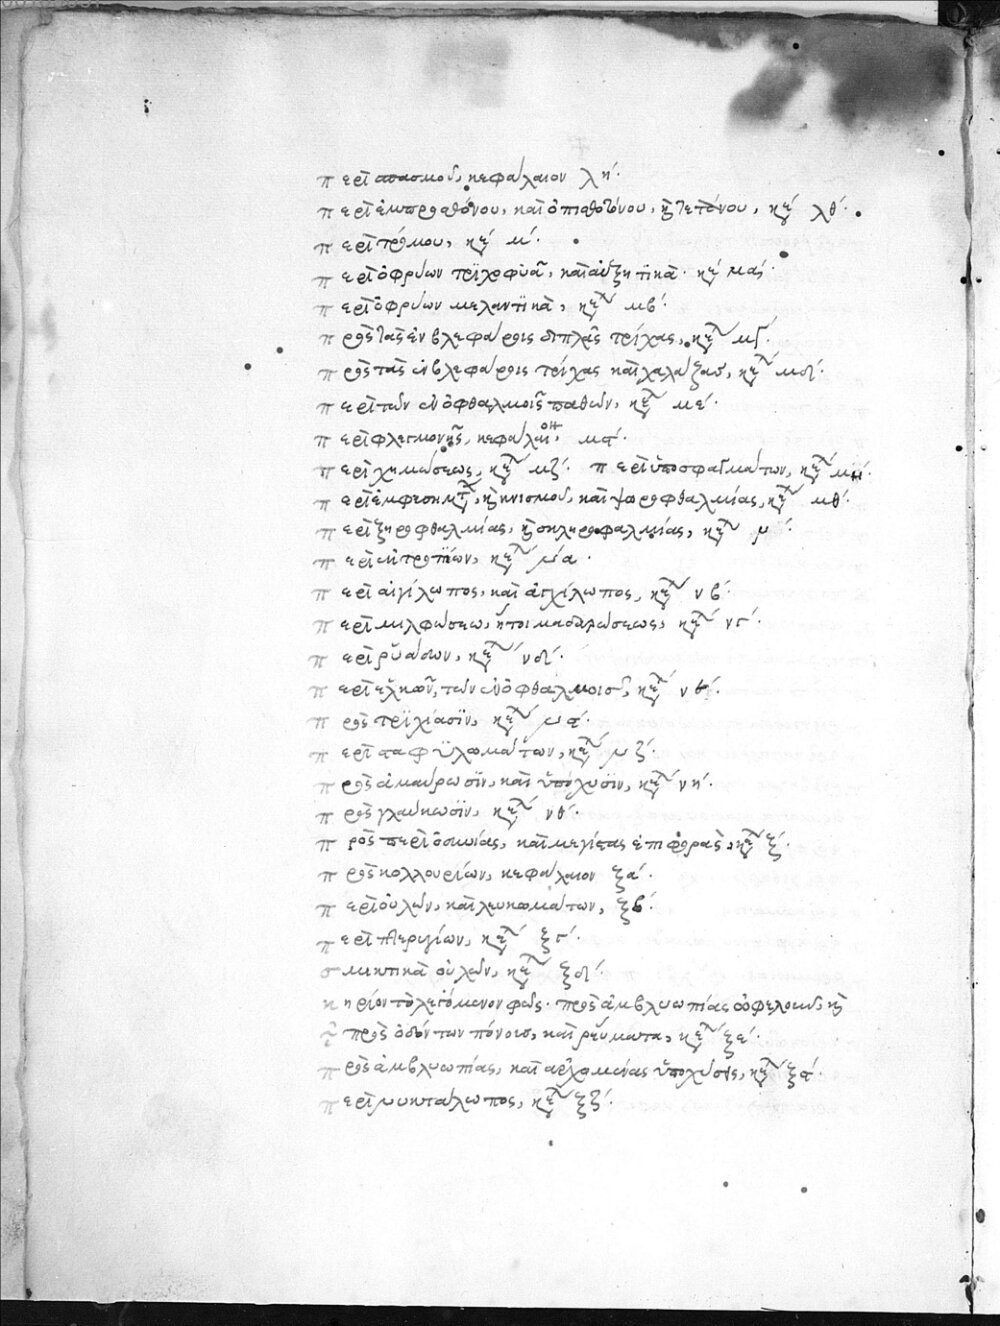 περὶ σπασμοῦ, κεφάλαιον λη΄.
περὶ ἐμπροσθοτόνου, καὶ ὀπισθοτόνου, καὶ τετάνου, κεφ λθ΄.
περὶ τρόμου, κεφ μ΄.
περὶ ὀφρύων τριχοφυᾶ, καὶ αὐξητικὰ. κεφ μα΄.
περὶ ὀφρύων μελαντικὰ, κεφ μβ΄.
πρὸς τὰς ἐν βλεφάροις διπλὰς τρίχας, κεφ μγ΄.
πρὸς τὰς ἐν βλεφάροις τρίχας καὶ χαλάζας, κεφ μδ΄.
περὶ τῶν ἐν ὀφθαλμοῖς παθῶν, κεφ με΄.
περὶ φλεγμονῆς, κεφάλαιον μς΄.
περὶ χημώσεως, κεφ μζ΄. περὶ ὑποσφαγμάτων, κεφ μη΄.
περὶ ἐμφυσημάτων, καὶ κνισμοῦ, καὶ ψωροφθαλμίας, κεφ μθ΄.
περὶ ξηροφθαλμίας, καὶ σκληροφαλμίας, κεφ ν΄.
περὶ ἐκτροπίων, κεφ να.
περὶ αἰγίλωπος, καὶ ἀγχίλωπος, κεφ νβ΄.
περὶ μιλφώσεω, ἤτοι μαδαρώσεως, κεφ νγ΄.
περὶ ῥυάδων, κεφ νδ΄.
περὶ ἑλκῶν, τῶν ἐν ὀφθαλμοῖς, κεφ νε΄.
πρὸς τριχίασιν, κεφ νς΄.
περὶ σταφυλωμάτων, κεφ νζ΄.
πρὸς ἀμαύρωσιν, καὶ ὑπόχυσιν, κεφ νη΄.
πρὸς γλαύκωσιν, κεφ νθ΄.
πρὸς περιοδυνίας, καὶ μεγίστας ἐπιφορὰς, κεφ ξ΄.
πρὸς κολλουρίων, κεφάλαιον ξα΄.
περὶ οὐλῶν, καὶ λευκωμάτων, ξβ΄.
περὶ πτερυγίων, κεφ ξγ΄
σμηκτικὰ οὐλῶν, κεφ ξδ΄
κηρίον τὸ λεγόμενον φῶς. πρὸς ἀμβλυωπίας ὠφελοῦν, καὶ
πρὸς ὀδόντων πόνους, καὶ ῥεύματα, κεφ ξε΄.
πρὸς ἀμβλυωπίας, καὶ ἀρχομένας ὑποχύσεις, κεφ ξς΄.
περὶ νυκτάλωπος, κεφ ξζ΄.